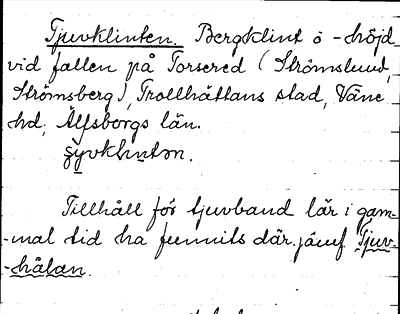 Tjuvklinten. Bergklint o -höjd
vid fallen på Torsered (Strömslund,
Strömsberg), Trollhättans stad, Väne
hd, Älfsborgs län.
Tillhåll för tjuvband lär i gam-
-mal tid ha funnits där. jämf Tjuv-
-hålan.